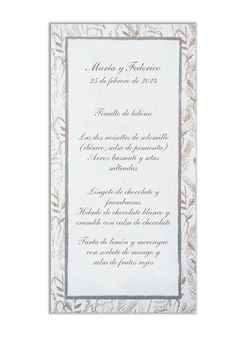 María y Federico
25 de febrero de 2024
Tiradito de lubina
Las dos noisettes de solomillo
(ibérico, salsa de pimienta)
Arroz basmati y setas
salteadas
Lingote de chocolate y
frambuesas
Helado de chocolate blanco y
crumble con salsa de chocolate
Tarta de limón y merengue
con sorbete de mango y
salsa de frutos rojos